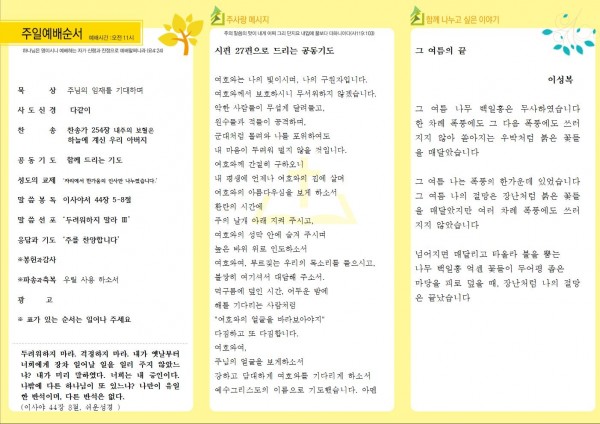 주일예배순서 예배시간 : 오전 11시
하나님은 영이시니 예배하는 자가 신령과 진정으로 예배할찌니라 (요4:24)
묵 상 주님의 임재를 기대하며
사 도 신 경 다같이
찬 송 찬송가 254장 내주의 보혈은
하늘에 계신 우리 아버지
공 동 기 도 함께 드리는 기도
성도의 교제 '자리에서 한가음의 인사만 나누겠습니다.'
말 씀 봉 독 이사야서 44장 5-8절
말 씀 선 포 "두려워하지 말라 Ⅲ"
응답과 기도 '주를 찬양합니다'
※봉헌과감사
※파송과축복 우릴 사용 하소서
광 고
※ 표가 있는 순서는 일어나 주세요
두려워하지 마라, 걱정하지 마라, 내가 옛날부터
너희에게 장차 일어날 일을 일러 주지 않았느
냐? 내가 미리 말하였다. 너희는 내 증인이다.
나밖에 다른 하나님이 또 있느냐? 나만이 유일
한 반석이며, 다른 반석은 없다.
(이사야 44장 8절, 쉬운성경 )
주사랑 메시지
주의 말씀의 맛이 내게 어찌 그리 단지요 내입에 꿀보다 더하니이다(시119:103)
시편 27편으로 드리는 공동기도
여호와는 나의 빛이시며, 나의 구원자입니다.
여호와께서 보호하시니 무서워하지 않겠습니다.
악한 사람들이 무섭게 달려들고,
원수들과 적들이 공격하며,
군대처럼 몰려와 나를 포위하여도
내 마음이 두려워 떨지 않을 것입니다.
여호와께 간절히 구하오니
내 평생에 언제나 여호와의 집에 살며
여호와의 아름다우심을 보게 하소서
환란의 시간에
주의 날개 아래 지켜 주시고,
여호와의 성막 안에 숨겨 주시며
높은 바위 위로 인도하소서
여호와여, 부르짖는 우리의 목소리를 들으시고,
불쌍히 여기셔서 대답해 주소서.
먹구름에 덮인 시간, 어두운 밤에
해를 기다리는 사람처럼
"여호와의 얼굴을 바라보아야지"
다짐하고 또 다짐합니다.
여호와여,
주님의 얼굴을 보게하소서
강하고 담대하게 여호와를 기다리게 하소서
예수그리스도의 이름으로 기도했습니다. 아멘
함께 나누고 싶은 이야기
그 여름의 끝
이성복
그 여름 나무 백일홍은 무사하였습니다
한 차례 폭풍에도 그 다음 폭풍에도 쓰러
지지 않아 쏟아지는 우박처럼 붉은 꽃들
을 매달았습니다
그 여름 나는 폭풍의 한가운데 있었습니다
그 여름 나의 절망은 장난처럼 붉은 꽃들
을 매달았지만 여러 차례 폭풍에도 쓰러
지지 않았습니다
넘어지면 매달리고 타올라 불을 뿜는
나무 백일홍 억센 꽃들이 두어평 좁은
마당을 피로 덮을 때, 장난처럼 나의 절망
은 끝났습니다